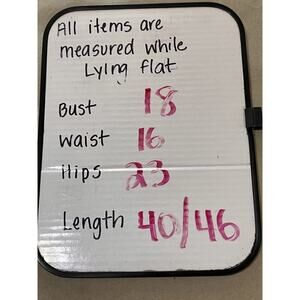 All items are
measured while
Lying flat
Bust 18
Waist 16
Hips 23
Length 40/46